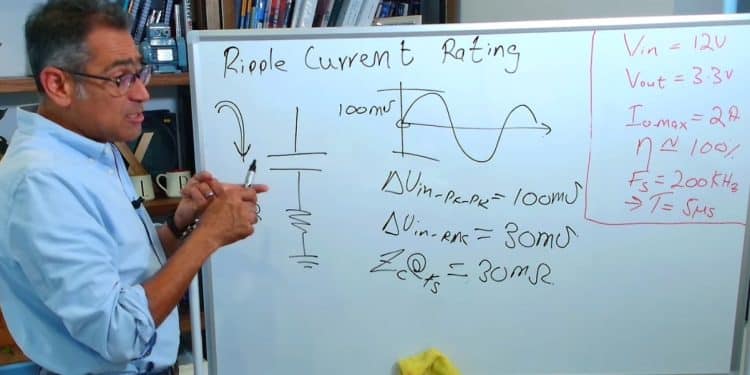 Ripple Current Rating
100mv
ΔVin-PK-PK = 100mv
ΔVin-RMS = 30mv
Zc@fs = 30mΩ
Vin = 12V
Vout = 3.3V
Io-max = 2A
η ≃ 100%
Fs = 200KHz
→ T = 5μs